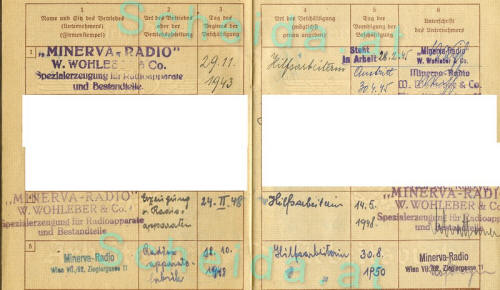 1
Name und Sitz des Betriebes
(Unternehmers)
(Firmenstempel)
2
Art des Betriebes
oder der
Betriebsabteilung
3
Tag des
Beginnes
1
"MINERVA-RADIO"
W. WOHLEBER & Co.
Spezialerzeugung für Radioapparate
und Bestandteile.
29.11.
1943
"MINERVA-RADIO"
W. WOHLEBER & Co.
Spezialerzeugung für Radioapparate
und Bestandteile
Erzeugung
v. Radio-
apparaten
24. II. 48
5
Minerva-Radio
Wien VII./62, Zieglergasse 11
Radio
apparate-
fabrik
12. 10.
1948
4
Art der Beschäftigung
(möglichst
genau angeben)
5
Tag der
Beendigung der
Beschäftigung
6
Unterschrift
des
Unternehmers
1
Hilfsarbeiterin
Steht
in Arbeit 28.2.45
Austritt
30.4.45
Minerva-Radio
W. Wohleber & Co.
Minerva-Radio
W. & Co.
Hilfsarbeiterin
14. 5.
1948
"MINERVA-RADIO"
W. WOHLEBER & Co.
Spezialerzeugung für Radioapparate
und Bestandteile
5
Hilfsarbeiterin
30. 8.
1950
Minerva-Radio
Wien VII./62, Zieglergasse 11
Scheida.at
Scheida.at